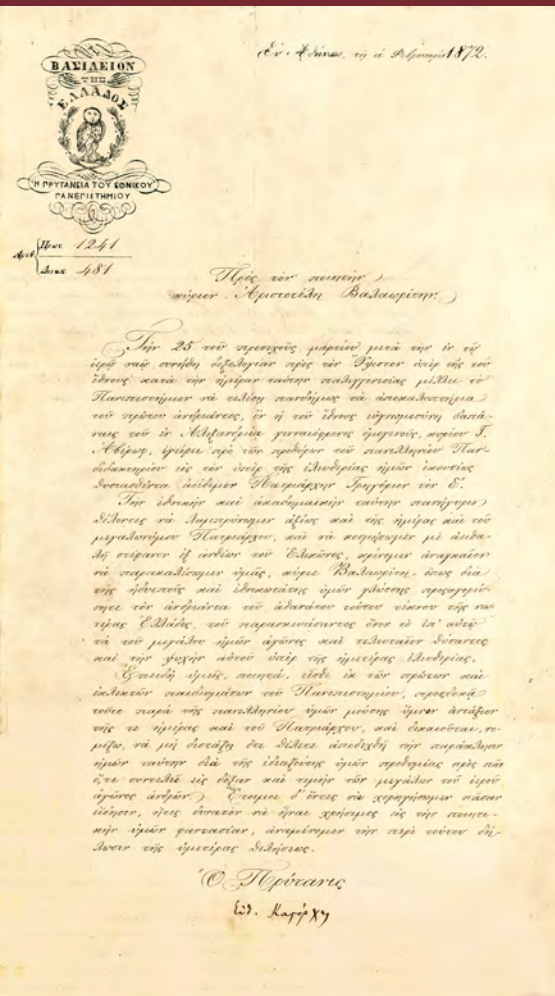 ΒΑΣΙΛΕΙΟΝ
ΤΗΣ
ΕΛΛΑΔΟΣ
Η ΠΡΥΤΑΝΕΙΑ ΤΟΥ ΕΘΝΙΚΟΥ
ΠΑΝΕΠΙΣΤΗΜΙΟΥ
Ἐν Ἀθήναις, τῇ α Φεβρουαρίου 1872.
Ἀριθ
Πρωτ 1241
Διεκ 481
Πρὸς τὸν ποιητὴν
κύριον Ἀριστοτέλη Βαλαωρίτην
Τὴν 25 τοῦ προσεχοῦς μαρτίου μετὰ τὴν ἐν τῷ
ἱερῷ ναῷ συνήθη δοξολογίαν πρὸς τὸν Ὕψιστον ὑπὲρ τῆς τοῦ
ἔθνους κατὰ τὴν ἡμέραν ταύτην παλιγγενεσίας μέλλει τὸ
Πανεπιστήμιον νὰ τελέσῃ πανδήμως τὰ ἀποκαλυπτήρια
τοῦ πρώτου ἀνδριάντος, ὃν ἡ τοῦ ἔθνους εὐγνωμοσύνη δαπά-
ναις τοῦ ἐν Ἀλεξανδρείᾳ γενναιόφρονος ὁμογενοῦς, κυρίου Γ.
Ἀβέρωφ, ἐγείρει πρὸ τῶν προθύρων τοῦ πανελληνίου Παν-
διδακτηρίου εἰς τὸν ὑπὲρ τῆς ἐλευθερίας ἡμῶν ἑκουσίως
θυσιασθέντα ἀείδιμον Πατριάρχην Γρηγόριον τὸν Ε'.
Τὴν ἐθνικὴν καὶ ἀκαδημαϊκὴν ταύτην πανήγυριν
θέλοντες νὰ λαμπρύνωμεν ἀξίως καὶ τῆς ἡμέρας καὶ τοῦ
μεγαλωνύμου Πατριάρχου, καὶ νὰ κοσμήσωμεν μὲ ἀειθα-
λῆ στέφανον ἐξ ἀνθέων τοῦ Ἑλικῶνος, κρίνομεν ἀναγκαῖον
νὰ παρακαλέσωμεν ὑμᾶς, κύριε Βαλαωρίτη, ὅπως διὰ
τῆς ἡδυεποῦς καὶ ἐθνικωτάτης ὑμῶν γλώσσης προσαγορεύ-
σητε τὸν ἀνδριάντα τοῦ ἀθανάτου τούτου τέκνου τῆς νεω-
τέρας Ἑλλάδος, τοῦ παρασκευάσαντος ὅσον τὸ ἐπ' αὐτῷ
τὰ τοῦ μεγάλου ἡμῶν ἀγῶνος καὶ τελευταῖον θύσαντος
καὶ τὴν ψυχὴν αὑτοῦ ὑπὲρ τῆς ἡμετέρας ἐλευθερίας.
Ἐπειδὴ ὑμεῖς, ποιητά, εἶσθε ἐκ τῶν πρώτων καὶ
ἐκλεκτῶν παιδευμάτων τοῦ Πανεπιστημίου, προσδοκᾷ
τοῦτο παρὰ τῆς πανελληνίου ὑμῶν μούσης ὕμνον ἀντάξιον
τῆς τε ἡμέρας καὶ τοῦ Πατριάρχου, καὶ δικαιοῦται, νο-
μίζω, νὰ μὴ διστάζῃ ὅτι θέλετε ἀποδεχθῆ τὴν παράκλησιν
ἡμῶν ταύτην διὰ τῆς ἰδιαζούσης ὑμῶν προθυμίας πρὸς πᾶν
ὅ,τι συντελεῖ εἰς δόξαν καὶ τιμὴν τῶν μεγάλων τοῦ ἱεροῦ
ἀγῶνος ἀνδρῶν. Ἕτοιμοι δ' ὄντες νὰ χορηγήσωμεν πᾶσαν
εἴδησιν, ἥτις δυνατὸν νὰ ᾖναι χρήσιμος εἰς τὴν ποιητι-
κὴν ὑμῶν φαντασίαν, ἀναμένομεν τὴν περὶ τούτου δή-
λωσιν τῆς ὑμετέρας θελήσεως.
Ὁ Πρύτανις
Εὐθ. Καστόρχης